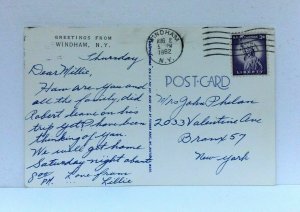 GREETINGS FROM
WINDHAM, N.Y.
Thursday
Dear Millie,
How are you and
all the family, did
Robert leave on his
trip yet, I have been
thinking of you.
We will get home
Saturday night about
8 oo PM. Love from
Lillie
WINDHAM
AUG 2
5 PM
1962
N.Y.
LIBERTY
3¢
POST-CARD
Mrs John Phelan
2033 Valentine Ave
Bronx 57
New York